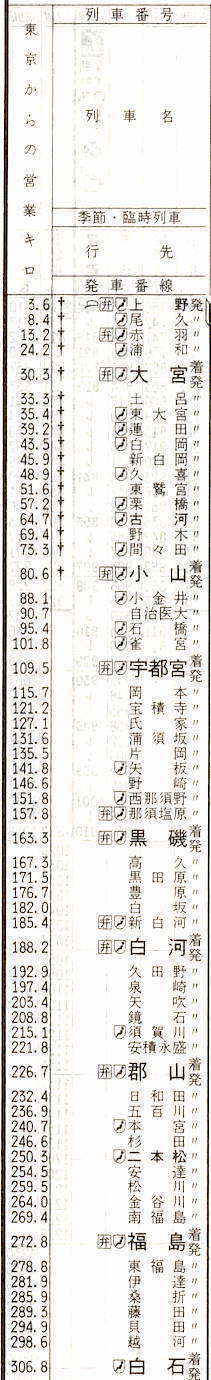 東京からの営業キロ
列車番号
列車名
季節・臨時列車
行先
発車番線
3.6 † 弁 上野 発
8.4 † 尾久 〃
13.2 † 弁 赤羽 〃
24.2 † 浦和 〃
30.3 † 弁 大宮 着発
33.3 † 土呂 〃
35.4 † 東大宮 〃
39.2 † 蓮田 〃
43.5 † 白岡 〃
45.9 † 新白岡 〃
48.9 † 久喜 〃
51.6 † 東鷲宮 〃
57.2 † 栗橋 〃
64.7 † 古河 〃
69.4 † 野木 〃
73.3 † 間々田 〃
80.6 † 弁 小山 着発
88.1 小金井 〃
90.7 自治医大 〃
95.4 石橋 〃
101.8 雀宮 〃
109.5 弁 宇都宮 着発
115.7 岡本 〃
121.2 宝積寺 〃
127.1 氏家 〃
131.6 蒲須坂 〃
135.5 片岡 〃
141.8 矢板 〃
146.6 野崎 〃
151.8 西那須野 〃
157.8 弁 那須塩原 〃
163.3 弁 黒磯 着発
167.3 高久 〃
171.5 黒田原 〃
176.7 豊原 〃
182.0 白坂 〃
185.4 弁 新白河 〃
188.2 弁 白河 着発
192.9 久田野 〃
197.4 泉崎 〃
203.4 矢吹 〃
208.8 鏡石 〃
215.1 須賀川 〃
221.8 安積永盛 〃
226.7 弁 郡山 着発
232.4 日和田 〃
236.9 五百川 〃
240.7 本宮 〃
246.6 杉田 〃
250.3 二本松 〃
254.5 安達 〃
259.5 松川 〃
264.0 金谷川 〃
269.4 南福島 〃
272.8 弁 福島 着発
278.8 東福島 〃
281.9 伊達 〃
285.9 桑折 〃
289.3 藤田 〃
294.9 貝田 〃
298.6 越河 〃
306.8 白石 着発